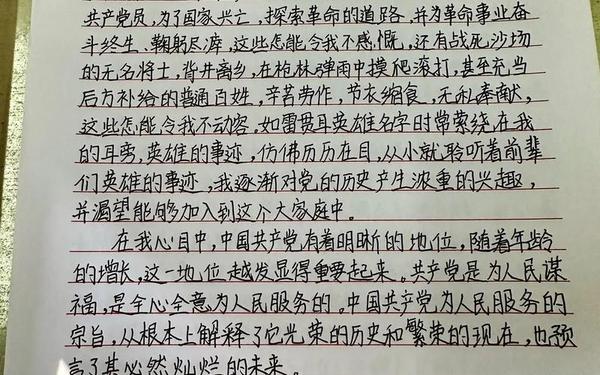 共产党员,为了国家兴亡,探索革命的道路,并为革命事业奋
斗终生、鞠躬尽瘁,这些怎能令我不感慨,还有战死沙场
的无名将士,背井离乡,在枪林弹雨中摸爬滚打,甚至充当
后方补给的普通百姓,辛苦劳作,节衣缩食,无私奉献,
这些怎能令我不动容,如雷贯耳英雄名字时常萦绕在我
的耳旁,英雄的事迹,仿佛历历在目,从小就聆听着前辈
们英雄的事迹,我逐渐对党的历史产生浓重的兴趣,
并渴望能够加入到这个大家庭中。
在我心目中,中国共产党有着明晰的地位,随着年龄
的增长,这一地位越发显得重要起来。共产党是为人民谋
福,是全心全意为人民服务的。中国共产党为人民服务的
宗旨,从根本上解释了它光荣的历史和繁荣的现在,也预
言了其必然灿烂的未来。